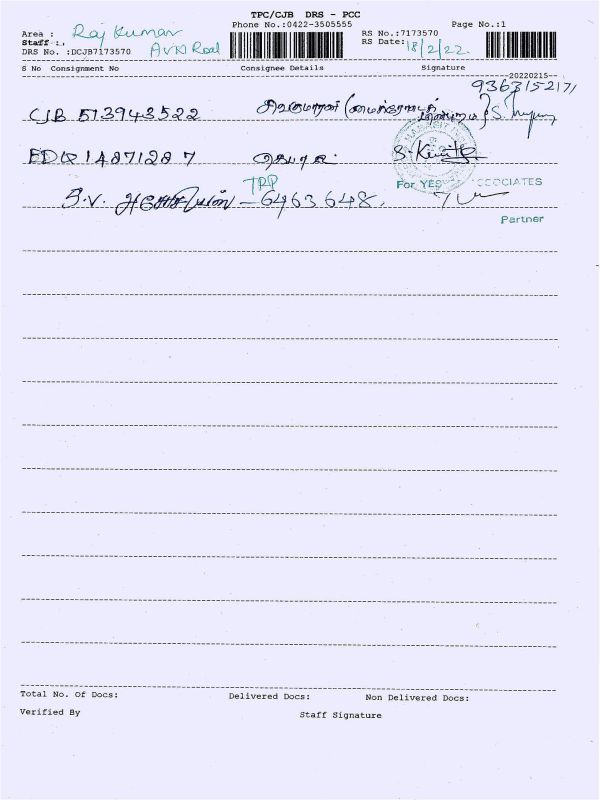 TPC/CJB DRS - PCC
Phone No.:0422-3505555 Page No.:1
Area : Raj Kumar RS No.:7173570
Staff : AVN Road RS Date: 18/2/22
DRS No. :DCJB7173570
S No Consignment No Consignee Details Signature
20220215
9363152171
CJB 513943522 சிவகுமாரன்
EDQ 14871287 S. 
For YES SSOCIATES
TPP
S.V. - 6463648.
Partner
Total No. Of Docs: Delivered Docs: Non Delivered Docs:
Verified By Staff Signature